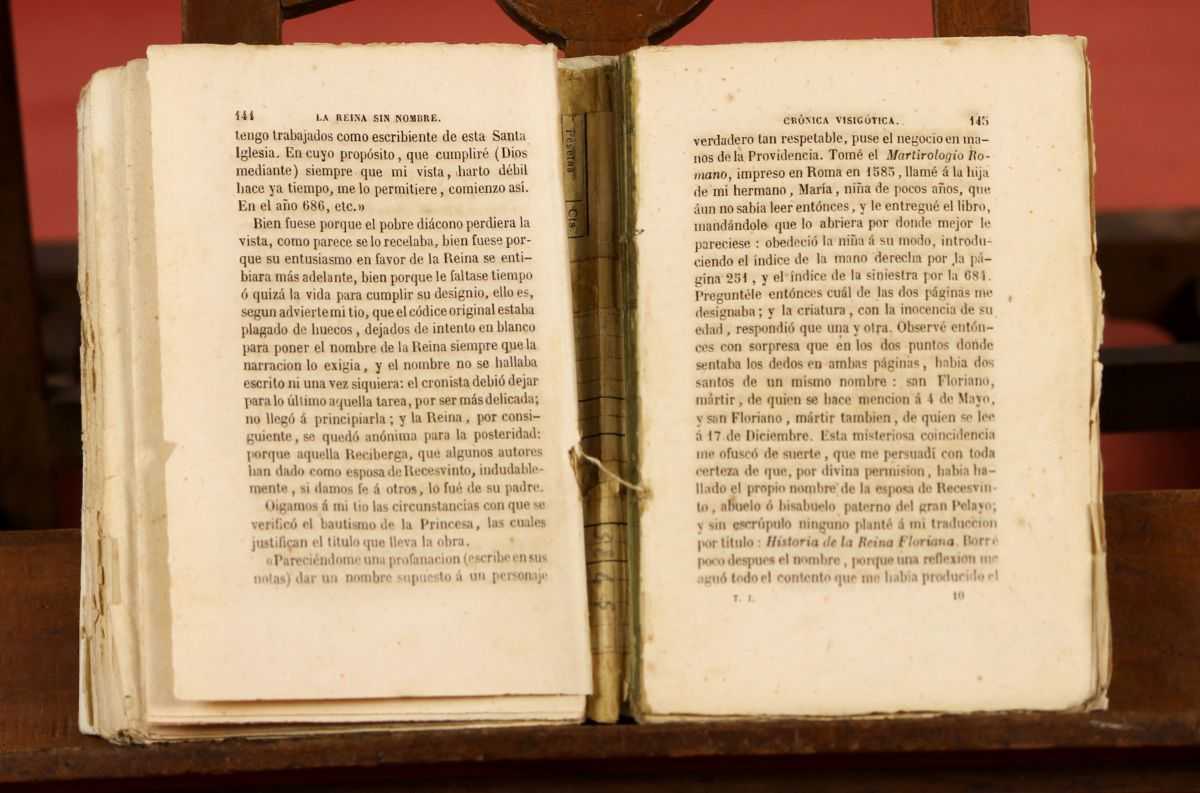 141 LA REINA SIN NOMBRE.
tengo trabajados como escribiente de esta Santa
Iglesia. En cuyo propósito, que cumpliré (Dios
mediante) siempre que mi vista, harto débil
hace ya tiempo, me lo permitiere, comienzo así.
En el año 686, etc.»
Bien fuese porque el pobre diácono perdiera la
vista, como parece se lo recelaba, bien fuese por-
que su entusiasmo en favor de la Reina se enti-
biara más adelante, bien porque le faltase tiempo
ó quizá la vida para cumplir su designio, ello es,
segun advierte mi tio, que el códice original estaba
plagado de huecos, dejados de intento en blanco
para poner el nombre de la Reina siempre que la
narracion lo exigia, y el nombre no se hallaba
escrito ni una vez siquiera: el cronista debió dejar
para lo último aquella tarea, por ser más delicada;
no llegó á principiarla; y la Reina, por consi-
guiente, se quedó anónima para la posteridad:
porque aquella Reciberga, que algunos autores
han dado como esposa de Recesvinto, indudable-
mente, si damos fe á otros, lo fué de su padre.
Oigamos á mi tio las circunstancias con que se
verificó el bautismo de la Princesa, las cuales
justifican el título que lleva la obra.
«Pareciéndome una profanacion (escribe en sus
notas) dar un nombre supuesto á un personaje
Pesetas
Cts.
CRÓNICA VISIGÓTICA. 145
verdadero tan respetable, puse el negocio en ma-
nos de la Providencia. Tomé el Martirologio Ro-
mano, impreso en Roma en 1585, llamé á la hija
de mi hermano, María, niña de pocos años, que
áun no sabia leer entónces, y le entregué el libro,
mandándole que lo abriera por donde mejor le
pareciese: obedeció la niña á su modo, introdu-
ciendo el índice de la mano derecha por la pá-
gina 251, y el índice de la siniestra por la 684.
Preguntéle entónces cuál de las dos páginas me
designaba; y la criatura, con la inocencia de su
edad, respondió que una y otra. Observé entón-
ces con sorpresa que en los dos puntos donde
sentaba los dedos en ambas páginas, habia dos
santos de un mismo nombre: san Floriano,
mártir, de quien se hace mencion á 4 de Mayo,
y san Floriano, mártir tambien, de quien se lee
á 17 de Diciembre. Esta misteriosa coincidencia
me ofuscó de suerte, que me persuadí con toda
certeza de que, por divina permision, habia ha-
llado el propio nombre de la esposa de Recesvin-
to, abuelo ó bisabuelo paterno del gran Pelayo;
y sin escrúpulo ninguno planté á mi traduccion
por título: Historia de la Reina Floriana. Borré
poco despues el nombre, porque una reflexion me
aguó todo el contento que me habia producido el
T. I. 10